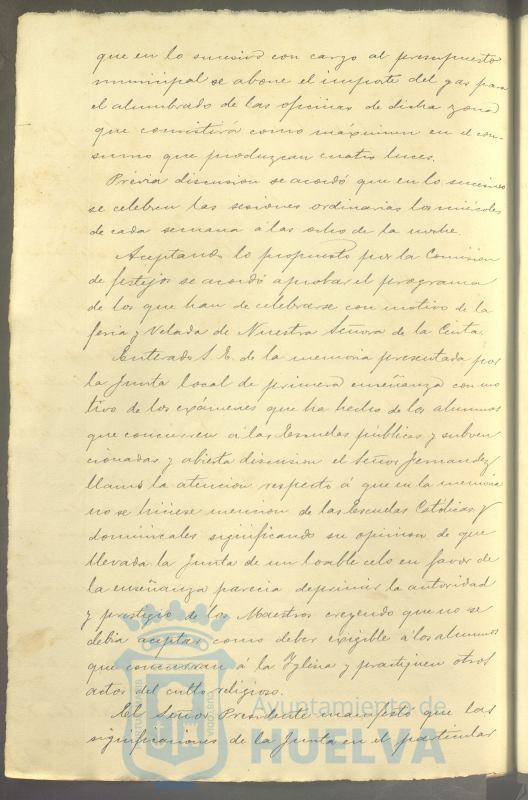 que en lo sucesivo con cargo al presupuesto
municipal se abone el importe del gas para
el alumbrado de las oficinas de dicha zona
que consistirá como máximum en el con-
sumo que produzcan cuatro luces.
Prévia discusion se acordó que en lo sucesivo
se celebren las sesiones ordinarias los miércoles
de cada semana á las ocho de la noche.
Aceptando lo propuesto por la Comision
de festejos se acordó aprobar el programa
de los que han de celebrarse con motivo de la
feria y Velada de Nuestra Señora de la Cinta.
Enterado S. E. de la memoria presentada por
la Junta local de primera enseñanza con mo
tivo de los exámenes que ha hecho de los alumnos
que concurren á las Escuelas públicas y subven
cionadas y abierta discusion el Señor Fernandez
llamó la atencion respecto á que en la memoria
no se hiciese mencion de las Escuelas Católicas y
dominicales significando su opinion de que
llevada la Junta de un loable celo en favor de
la enseñanza parecia deprimir la autoridad
y prestigio de los Maestros creyendo que no se
debia aceptar como deber exigible á los alumnos
que concurran á la Yglesia y practiquen otros
actos del culto religioso.
El Señor Presidente manifestó que las
significaciones de la Junta en el particular
Ayuntamiento de
HUELVA